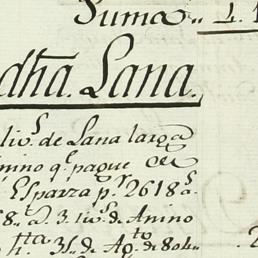 Suma.. L. 1
dha. Lana.
livs. de Lana larga
nino q.e pague
Esparza pr. 2618 s.
8.. a 3. livs. de Anino
hta. 3 Is. de Agto. de 804..
2